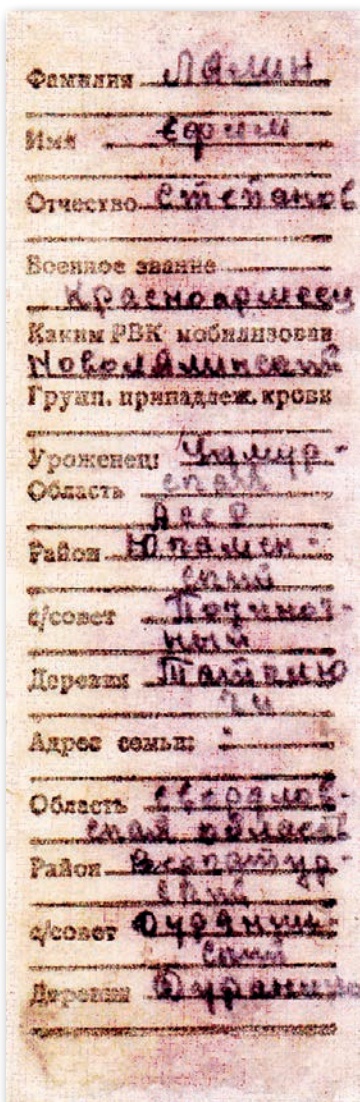 Фамилия Лямин
Имя Ефим
Отчество Степанов
Военное звание
Красноармеец
Каким РВК мобилизован
Новолялинский
Групп. принадлеж. крови
Уроженец: Удмурт-
Область ская
АССР
Район Юкамен-
ский
с/совет Починоч-
ный
Деревня
Адрес семьи:
Область свердлов-
ская область
Район Верхотур-
ский
с/совет
ский
Деревня